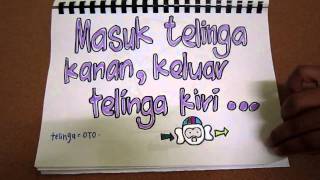 Masuk telinga
kanan, keluar
telinga kiri ...
telinga = OTO.